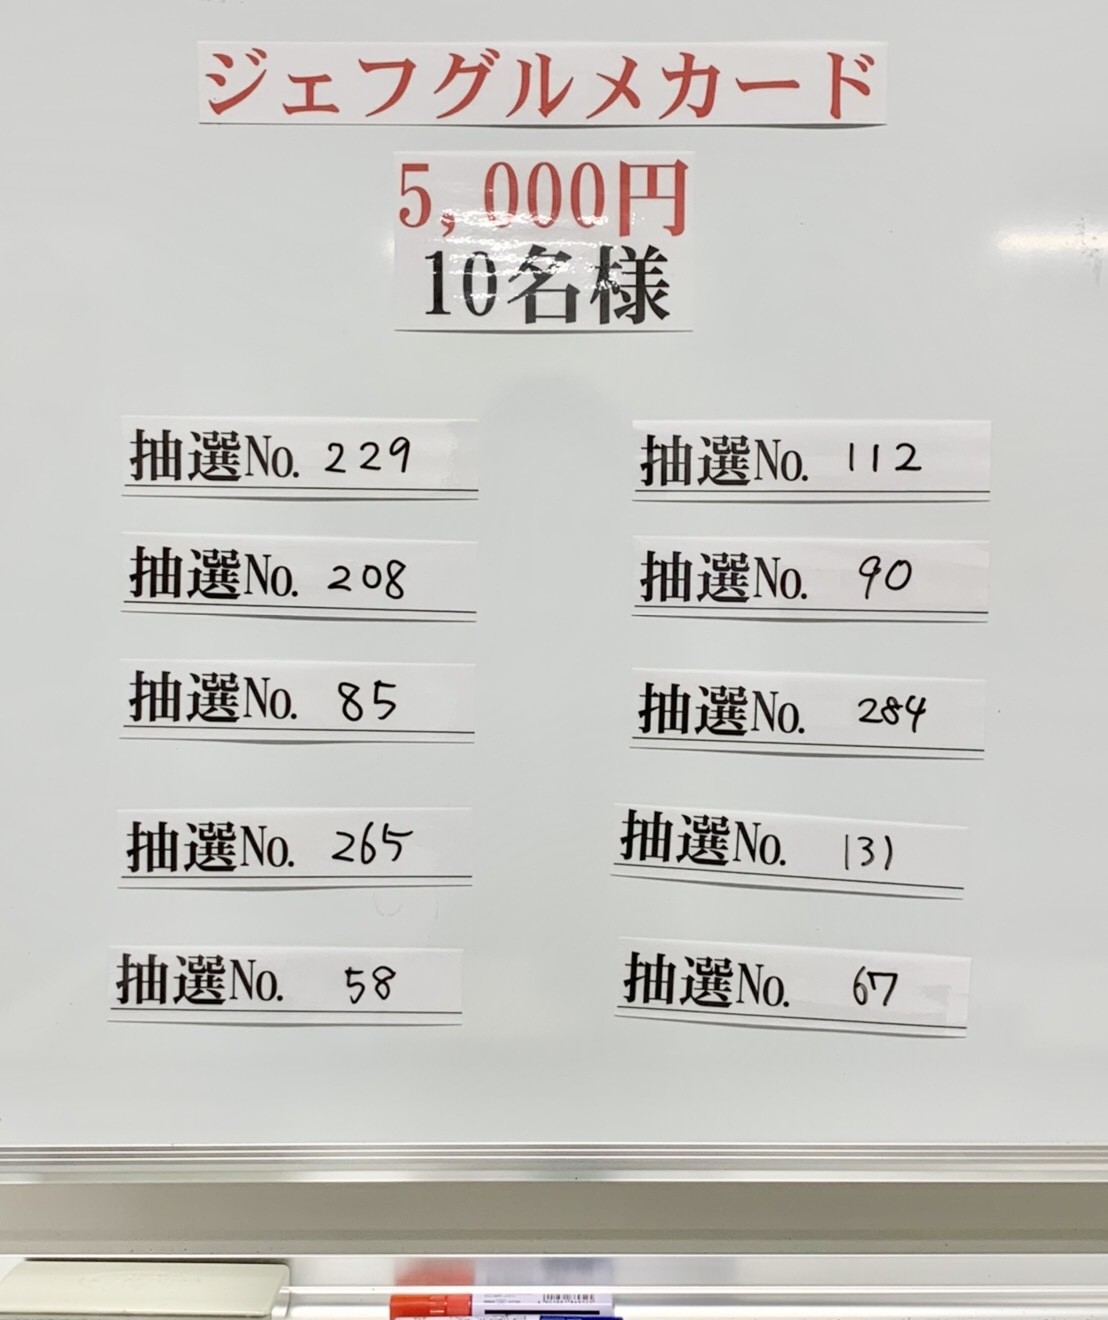 ジェフグルメカード
5,000円
10名様
抽選No. 229
抽選No. 112
抽選No. 208
抽選No. 90
抽選No. 85
抽選No. 284
抽選No. 265
抽選No. 131
抽選No. 58
抽選No. 67